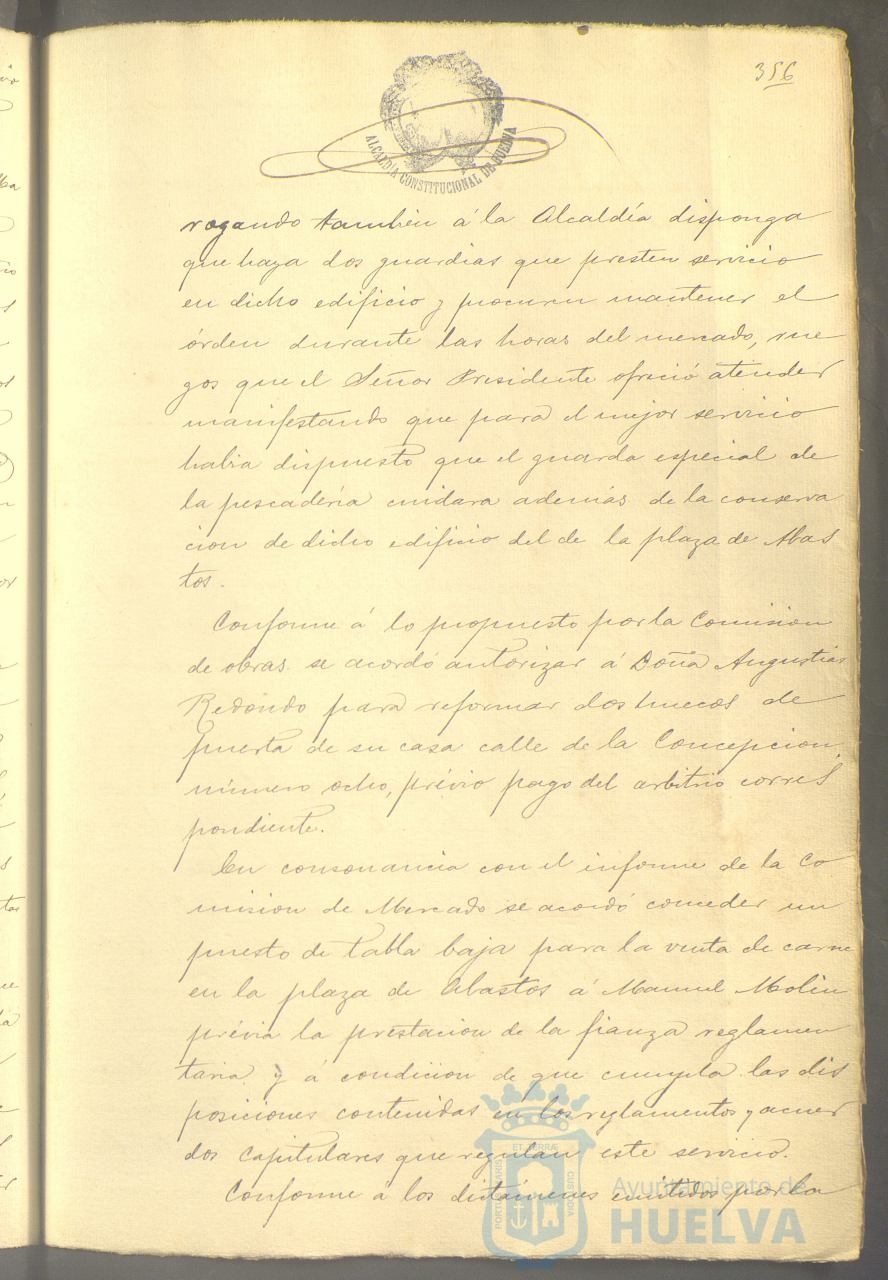 356
ALCALDÍA CONSTITUCIONAL DE HUELVA
rogando tambien á la Alcaldía disponga
que haya dos guardias que presten servicio
en dicho edificio y procuren mantener el
órden durante las horas del mercado, rue
gos que el Señor Presidente ofreció atender
manifestando que para el mejor servicio
habia dispuesto que el guarda especial de
la pescadería cuidara además de la conserva
cion de dicho edificio del de la plaza de Abas
tos.
Conforme á lo propuesto por la Comision
de obras se acordó autorizar á Doña Angustias
Redondo para reformar dos huecos de
puerta de su casa calle de la Concepcion,
número ocho, prévio pago del arbitrio corres
pondiente.
En consonancia con el informe de la Co
mision de Mercado se acordó conceder un
puesto de tabla baja para la venta de carne
en la plaza de Abastos á Manuel Molin
prévia la prestacion de la fianza reglamen
taria y á condicion de que cumpla las dis
posiciones contenidas en los reglamentos y acuer
dos capitulares que regulan este servicio.
Conforme á los dictámenes emitidos por la
PORTUS MARIS
ET TERRÆ
CUSTODIA
Ayuntamiento de
HUELVA